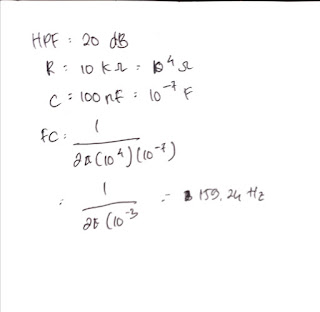 HPF : 20 dB
R = 10 kΩ = 10⁴ Ω
C = 100 nF = 10⁻⁷ F
fc : 1
2π(10⁴)(10⁻⁷)
= 1 = 159,24 Hz
2π (10⁻³